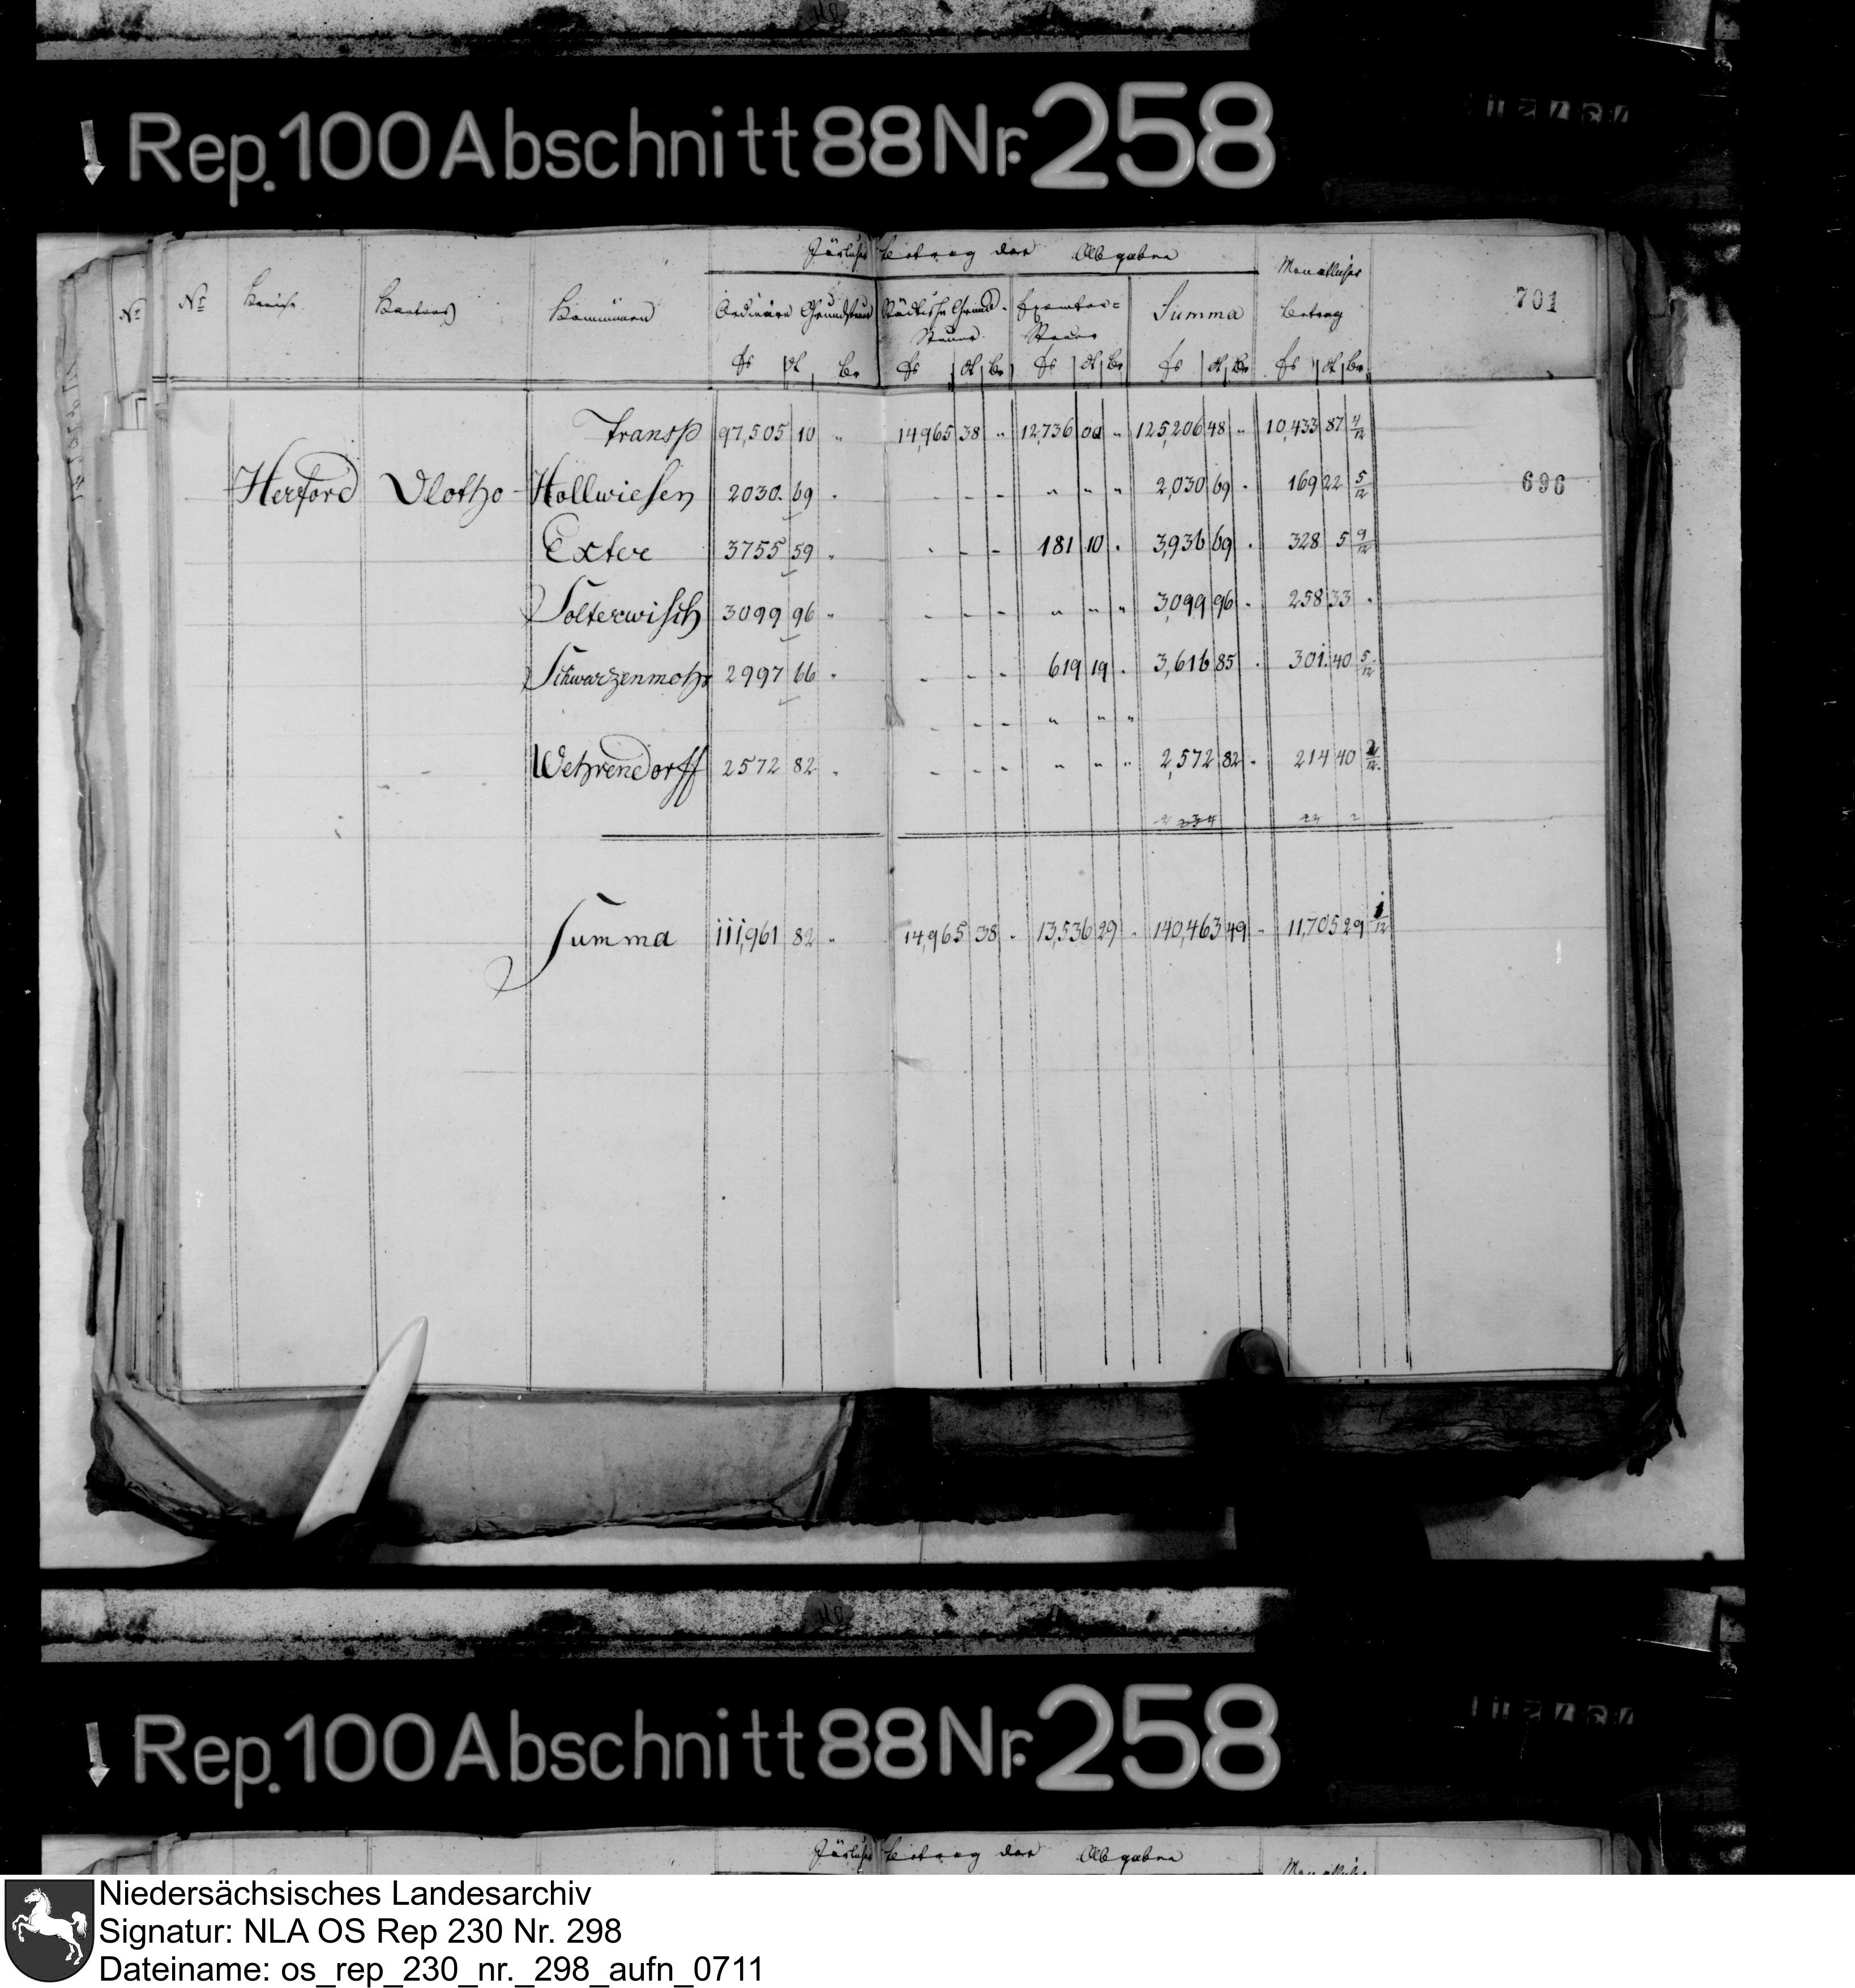 Rep. 100 Abschnitt 88 Nr. 258
Betrag der Abgaben
701
No
No Kreise Kantons Kommünen Ordinäre Grundsteuer Städtische Grund- Steuer Exemten= Steuer Summa Monatlicher Betrag
fs ct Ce fs ct Ce fs ct Ce fs ct Ce fs ct Ce
Transp 97,505 10 " 14,965 38 " 12,736 00 " 125,206 48 " 10,433 87 4/12
Herford Vlotho Hollwiesen 2030. 69 " - - - " " " 2,030 69 " 169 22 5/12
696
Exter 3755 59 " - - - 181 10 " 3,936 69 " 328 5 9/12
Solterwisch 3099 96 " - - - " " " 3,099 96 " 258 33 "
Schwarzenmohr 2997 66 " - - - 619 19 " 3,616 85 " 301. 40 5/12
- - - " " "
Wehrendorff 2572 82 " - - - " " " 2,572 82 " 214 40 2/12
Summa 111,961 82 " 14,965 38 " 13,536 29 " 140,463 49 " 11,705 29 1/12
Rep. 100 Abschnitt 88 Nr. 258
Betrag der Abgaben
Niedersächsisches Landesarchiv
Signatur: NLA OS Rep 230 Nr. 298
Dateiname: os_rep_230_nr._298_aufn_0711